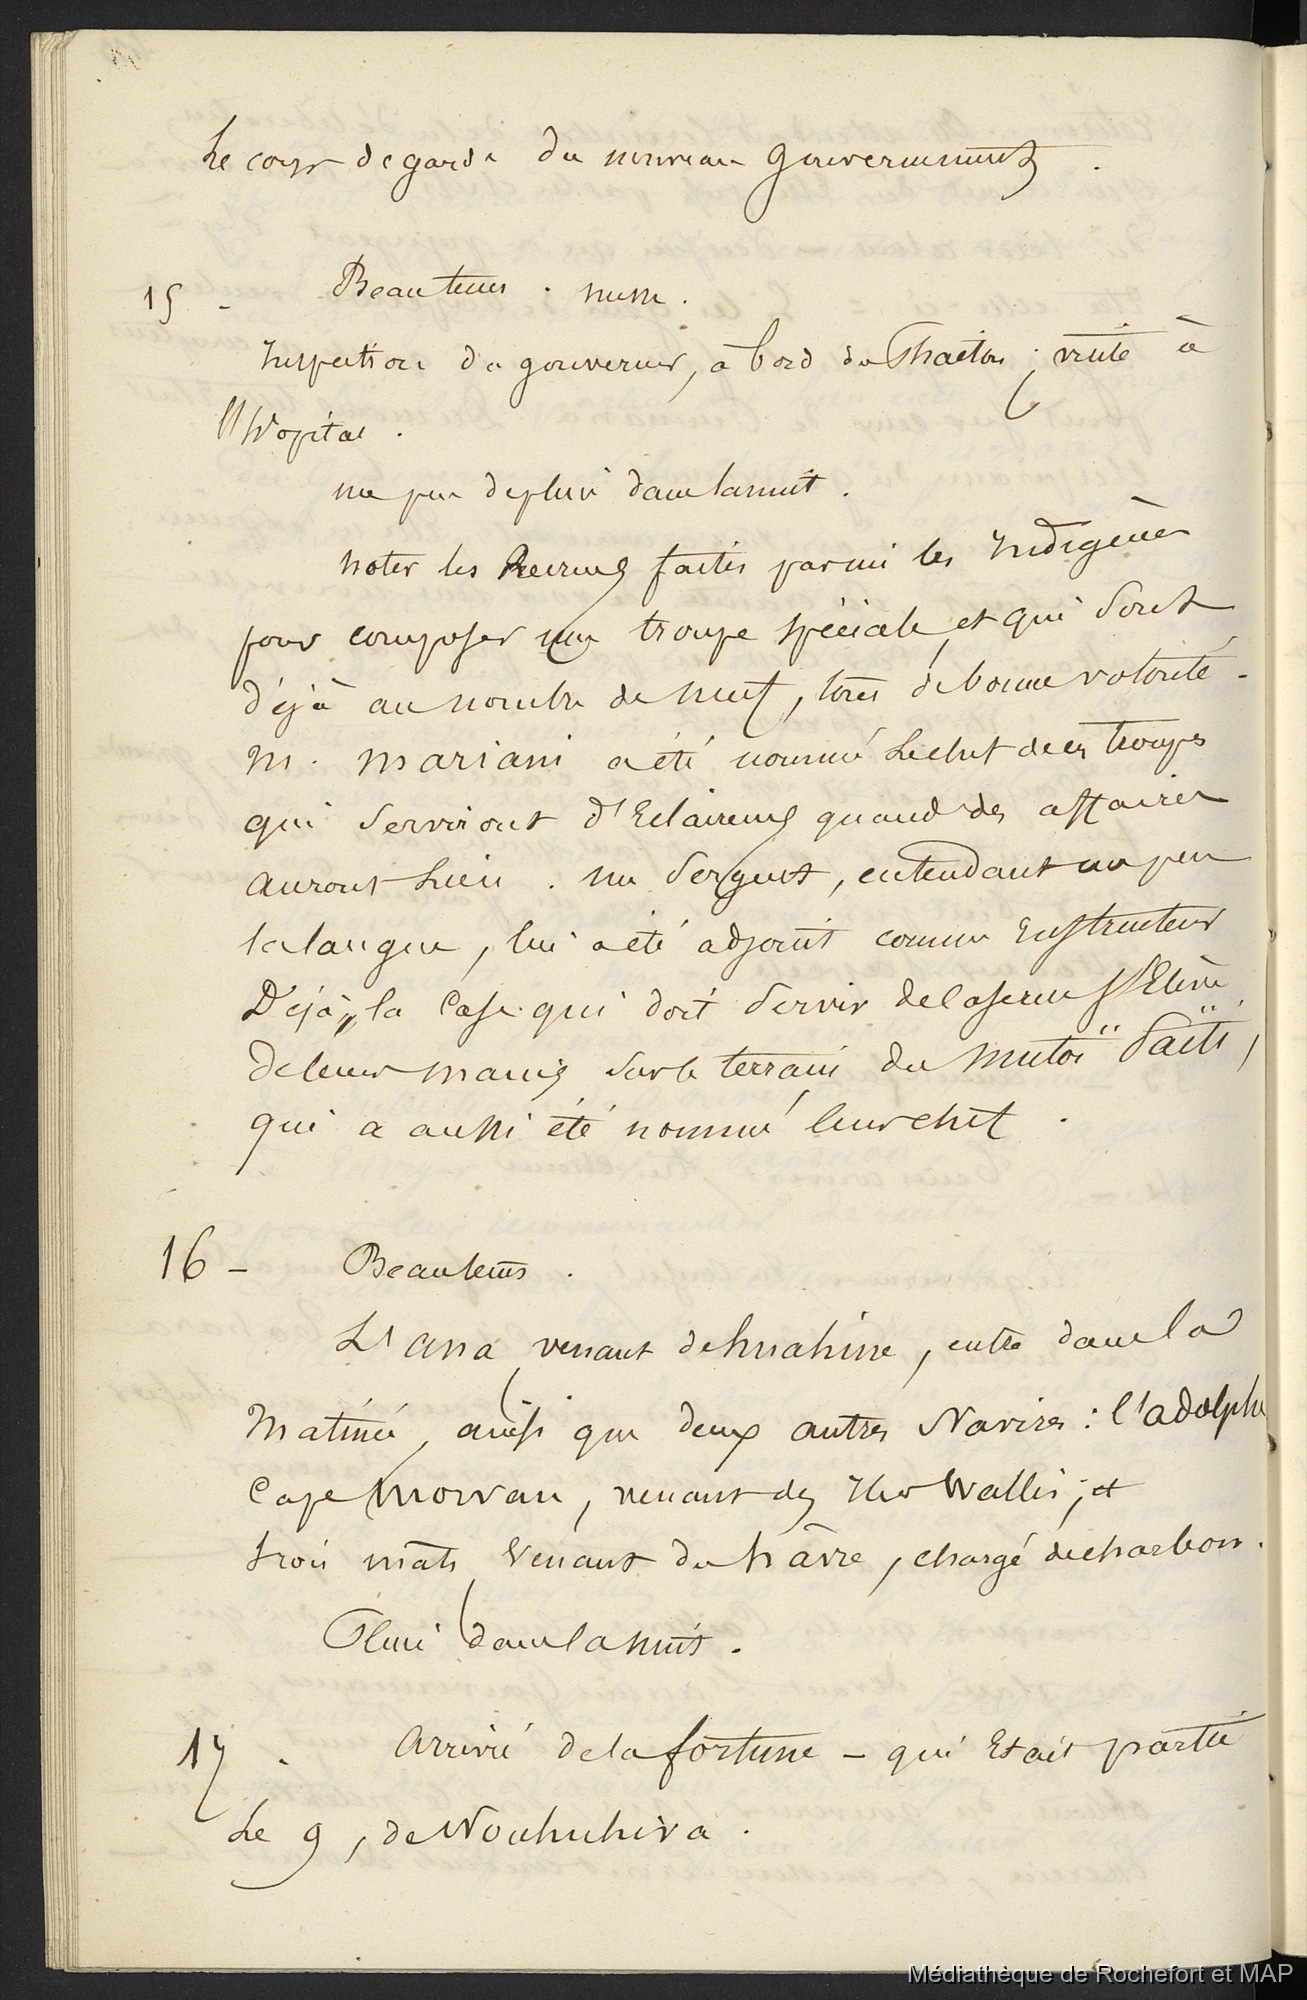 Le corps de garde du nouveau gouvernement.
15 - Beau tems. messe.
Inspection du gouverneur, à bord du Phaéton; visite à
l'hôpital.
un peu de pluie dans la nuit.
noter les Recrues faites parmi les Indigènes
pour composer une troupe spéciale, et qui sont
déjà au nombre de neuf, tous de bonne volonté.
M. Mariani a été nommé le chef de ces troupes
qui serviront d'Eclaireurs quand des affaires
auront lieu. un sergent, entendant un peu
la langue, lui a été adjoint comme Instructeur
Déjà, la case qui doit servir de caserne s'Elève
de leurs mains sur le terrain du Mutoï Païti,
qui a aussi été nommé leur chef.
16 - Beau tems.
L'ana, venant de huahine, entre dans la
Matinée, ainsi que deux autres Navires: l'adolphe
Cape Morvan, venant des Iles Wallis; et
trois mats, venant du hâvre, chargé de charbon.
Pluie dans la nuit.
17. arrivée de la fortune - qui Etait partie
Le 9, de Nouhuhiva.
Médiathèque de Rochefort et MAP